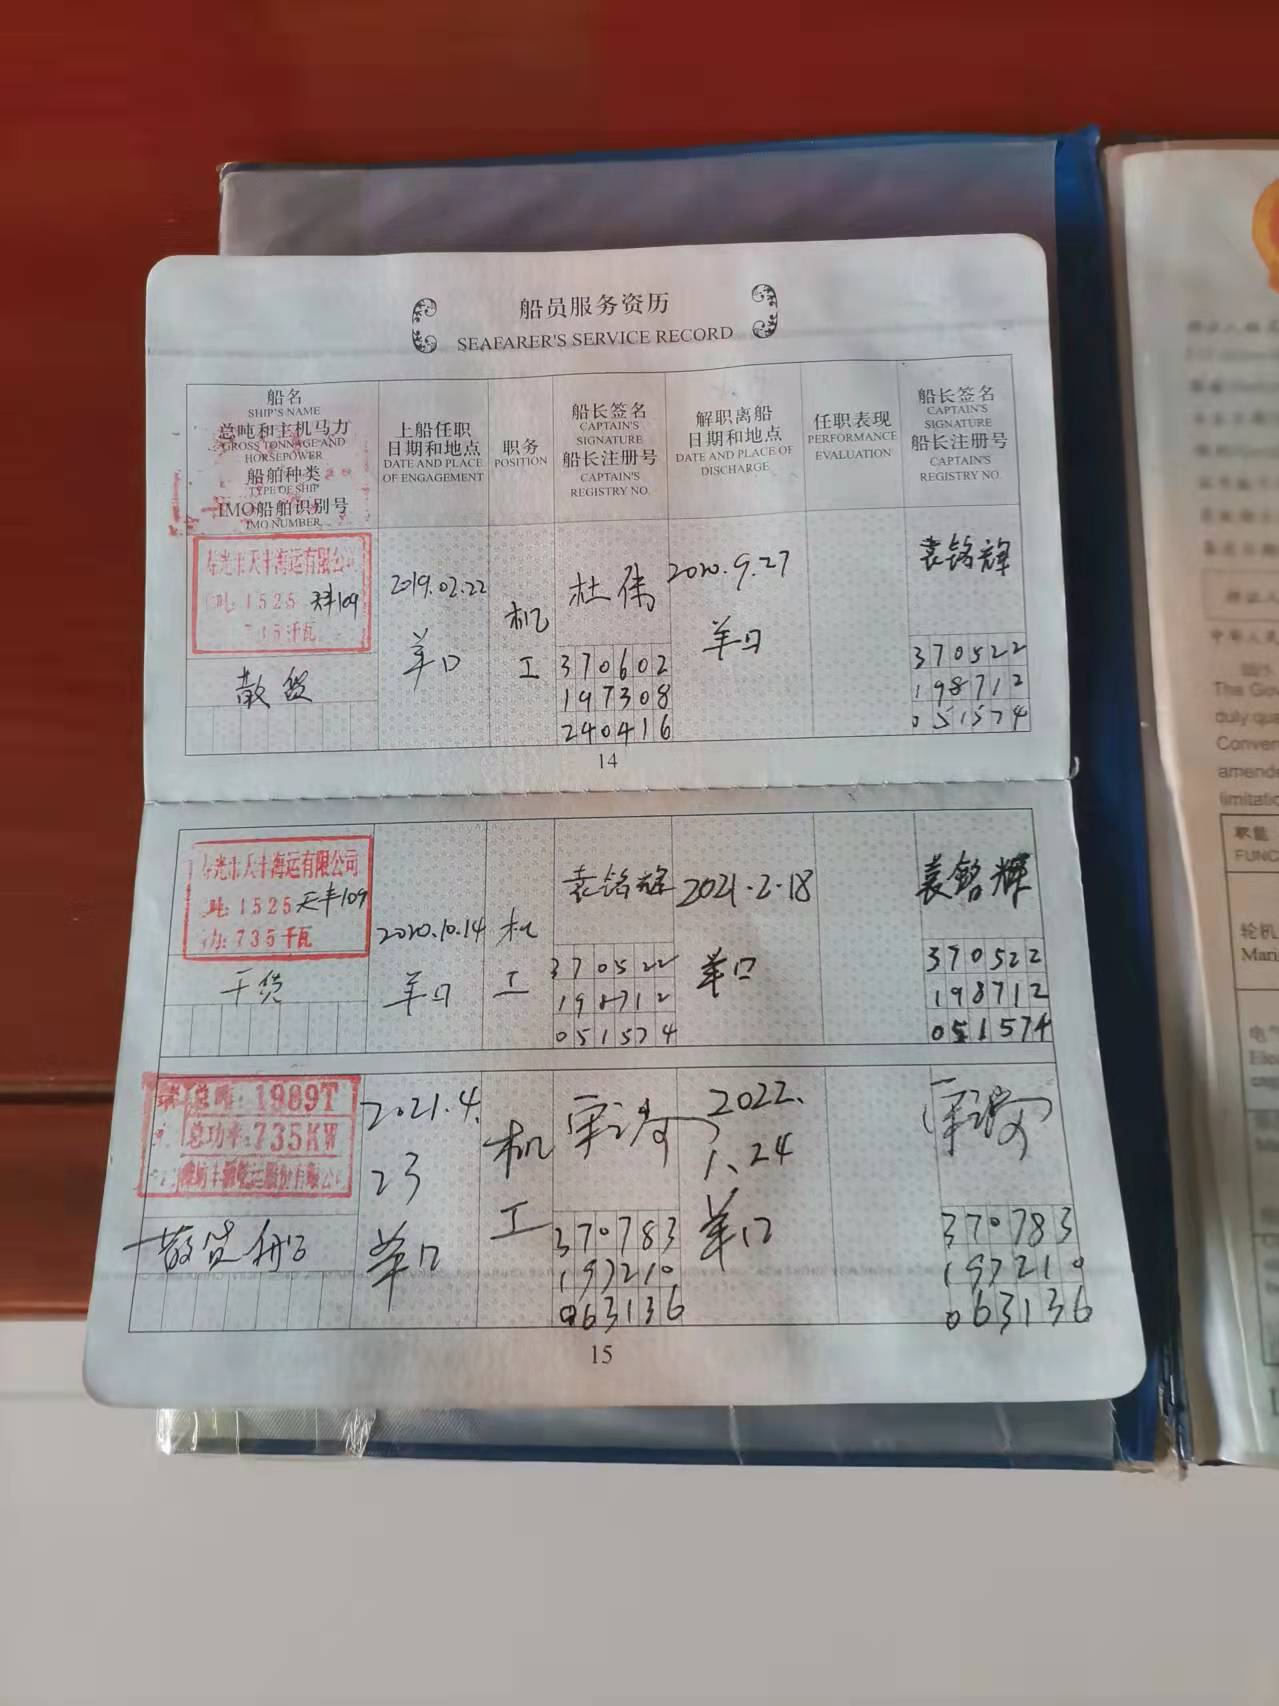 船员服务资历
SEAFARER'S SERVICE RECORD
船名
SHIP'S NAME
总吨和主机马力
GROSS TONNAGE AND
HORSEPOWER
船舶种类
TYPE OF SHIP
IMO船舶识别号
IMO NUMBER
上船任职
日期和地点
DATE AND PLACE
OF ENGAGEMENT
职务
POSITION
船长签名
CAPTAIN'S
SIGNATURE
船长注册号
CAPTAIN'S
REGISTRY NO.
解职离船
日期和地点
DATE AND PLACE OF
DISCHARGE
任职表现
PERFORMANCE
EVALUATION
船长签名
CAPTAIN'S
SIGNATURE
船长注册号
CAPTAIN'S
REGISTRY NO.
寿光市天丰海运有限公司
吨: 1525 天丰109
735千瓦
散货
2019.02.22
羊口
机
工
杜伟
370602
197308
240416
2020.9.27
羊口
袁铭辉
370522
198712
051574
14
寿光市天丰海运有限公司
吨: 1525 天丰109
力: 735千瓦
干货
2020.10.14
羊口
机
工
袁铭辉
370522
198712
051574
2021.2.18
羊口
袁铭辉
370522
198712
051574
总吨: 1989T
总功率: 735KW
散货船
2021.4.
23
羊口
机
工
370783
197210
063136
2022.
1.24
羊口
370783
197210
063136
15
中华人民
The Gov
duly qua
Conven
amende
limitatio
职能
FUNC
轮机
Mari
电气